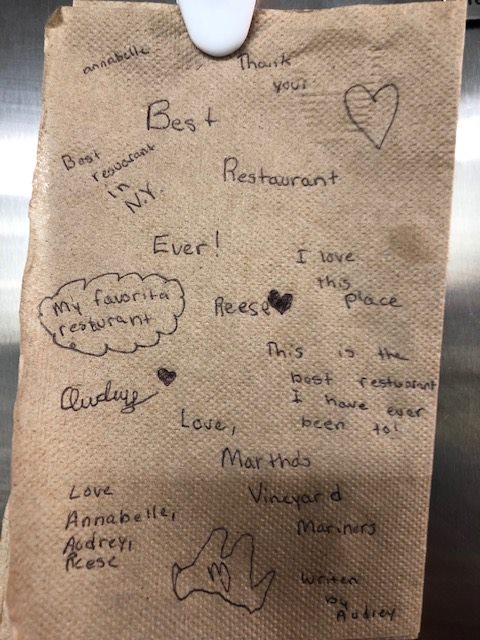 annabelle
Thank
you!
Best
Best
resuarant
in
N.Y.
Restaurant
Ever!
I love
this
place
My favorita
resturant
Reese
This is the
best restuarant
I have ever
been to!
Audrey
Love,
Marthas
Vineyard
Mariners
Love
Annabelle,
Audrey,
Reese
M
Writen
by
Audrey